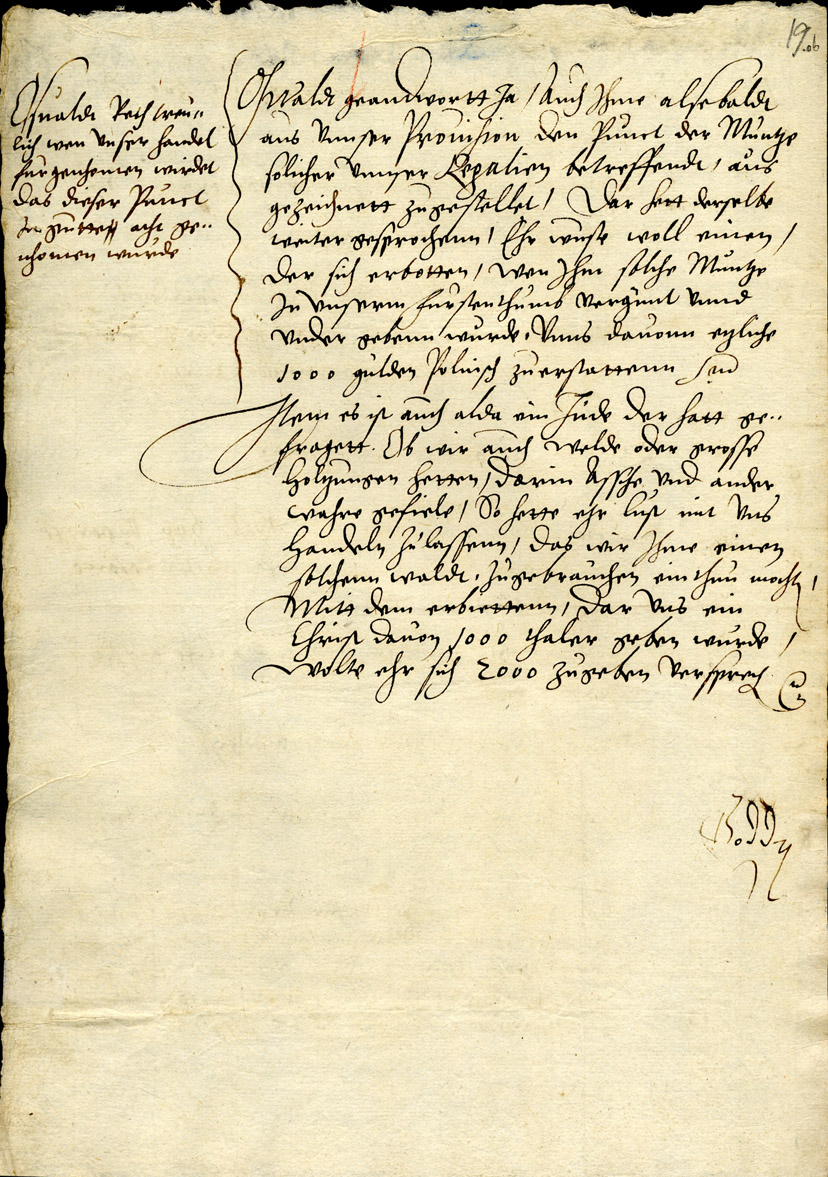 19.
Oswaldt Reth treu„
lich wen unser handel
furgenhomen wirdet
das dieser Punct
In gutter acht ge„
nhomen wurde
Oswaldt geandwortt Ja / Auch Ihme alsebaldt
aus Unnser Provision den Punct der Muntze
solicher Unnser Legatien betreffendt, aus
gezeichnett zugestellet / Dar hett derselbe
weiter gesprochenn / Ehr wuste woll einen /
Der sich erbotten / wen Ihm solche Muntze
In Unserm furstenthumb vergunt Unnd
Under gebenn wurde, Unns davonn etzliche
1000 gulden Polnisch zuerstattenn
Item es ist auch alda ein Jude der hatt ge„
fragett. Ob wir auch welde oder grosse
Holtzungen hetten / darin Assche und ander
wahre gefiele / So hette ehr lust mit Uns
Handeln zulassenn / das wir Ihme einen
solchenn waldt, zugebrauchen einthun mocht /
Mitt dem erbiettenn / Dar Uns ein
Christ davon 1000 thaler geben wurde /
Wolte ehr sich 2000 zugeben versprech